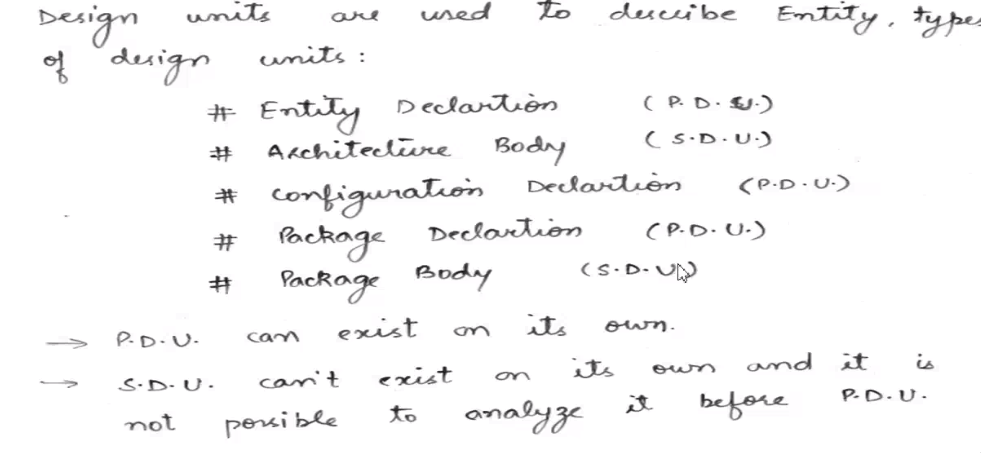 Design units are used to describe Entity, types
of design units :
# Entity Declartion (P.D.U.)
# Architecture Body (S.D.U.)
# Configuration Declartion (P.D.U.)
# Package Declartion (P.D.U.)
# Package Body (S.D.U.)
→ P.D.U. can exist on its own.
→ S.D.U. can't exist on its own and it is
not possible to analyze it before P.D.U.